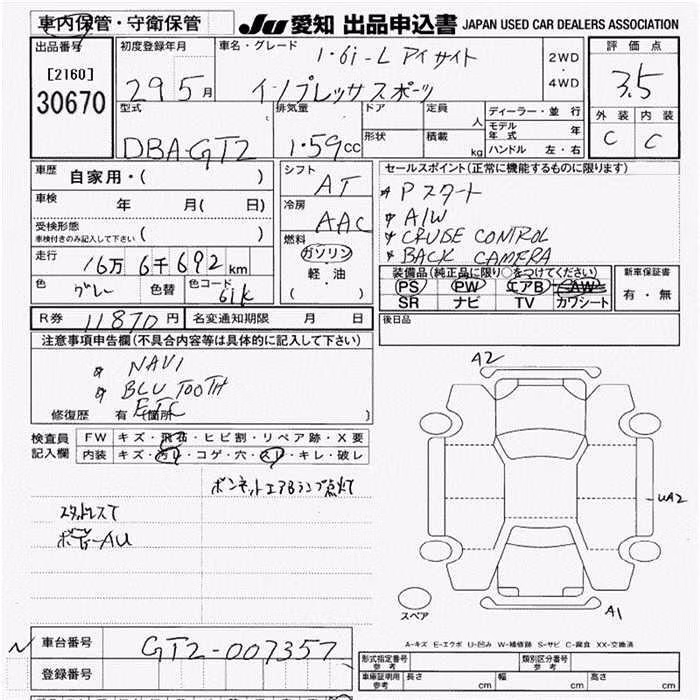 車内保管・守衛保管
JU 愛知 出品申込書 JAPAN USED CAR DEALERS ASSOCIATION
出品番号
[2160]
30670
初度登録年月
29 5月
車名・グレード
1.6i-L アイサイト
インプレッサスポーツ
2WD
・
4WD
評価点
3.5
外装 内装
C C
型式
DBA-GT2
排気量
1.59cc
ドア
形状
定員 人
積載 kg
ディーラー・並行
モデル年式 年
ハンドル 左・右
車歴
自家用・( )
車検 年 月( 日)
受検形態
車検付きのみ記入して下さい( )
走行
16万6千692km
色 グレー 色替 色コード 61K
シフト
AT
冷房
AAC
燃料
ガソリン
軽・油
( ・ )
セールスポイント(正常に機能するものに限ります)
* Pスタート
* A/W
* CRUSE CONTROL
* BACK CAMERA
装備品(純正品に限り○をつけてください)
PS PW エアB AW
SR ナビ TV カワシート
新車保証書
有・無
R券 11870円 名変通知期限 月 日
後日品
注意事項申告欄(不具合内容等は具体的に記入して下さい)
* NAVI
* BLUTOOTH
ETC
修復歴 有(箇所 )
検査員
記入欄
FW キズ・飛石・ヒビ割・リペア跡・X要
内装 キズ・汚レ・コゲ・穴・スレ・キレ・破レ
ボンネットエアBランプ点灯
スタットレスて
ボデーAU
A2
UA2
A1
スペア
A-キズ E-エクボ U-凹み W-補修跡 S-サビ C-腐食 XX-交換済
N
車台番号 GT2-007357
登録番号
形式指定番号
参考
類別区分番号
参考
車庫証明用
参考
長さ cm 幅 cm 高さ cm